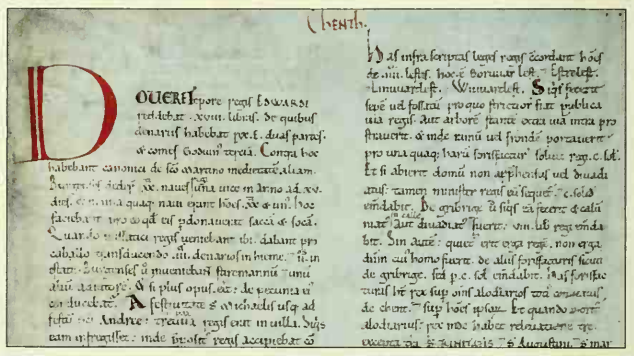 CHENTH.
DOVERE tēpore regis EDWARDI
reddebat .xviii. libras. De quibus
denariis habebat rex .E. duas partes.
& comes Goduin' tercia. Contra hoc
habebant canonici de scō martino medietatē aliam.
Burgenses dedeř .xx. naues una uice in anno ad .xv.
dies. & in una quaq; naui erant hoēs .xx. & un'. hoc
faciebant pro eo qd eis pdonauerat sacā & socā.
Quando missatici regis ueniebant ibi. dabant pro
caballo transducendo .iii. denarios in hieme. & .ii. in
estate. Burgenses u inueniebant stiremannū & unū
aliū adiutorē. & si plus opus eēt: de pecunia ei'
conducebat. A festiuitate S Michaelis usq; ad
festū sci Andree: treuua regis erat in uilla. Siq's
eam infregisset: inde pposit' regis accipiebat cō
Has infra scriptas leges regis ccordant hoēs
de .iiii. lestis. hoc ē Boruuar lest. & Estrelest.
& Linuuartlest. & Wiuuartlest. Siq's fecerit
sepē uel fossatū pro quo strictior fiat publica
uia regis. aut arborē stantē extra uia intra pro
strauerit. & inde ramū uel frondē portauerit:
pro una quaq; harū forisfactur' soluet regi .c. sol.
Et si abierit domū non app'hensus uel diuadi
atus: tamen minister regis eū sequet' & .c. solid
emdabit. De gribrige ū siq's eā fecerit & calū
niat' aut diuadiat' fuerit: .viii. lib regi emda
bit. Sin aute: quiet' erit erga rege. non erga
dnm cui' homo fuerit. De aliis forisfacturis sicut
de gribrige. sed p .c. sol emdabit. Has forisfac
turas ht rex sup om's alodiarios toti' comitatus
de chent. & sup hoēs ipsorū. Et quando morit'
alodiarius: rex inde habet releuatione tre.
excepta tra S TRINITATIS. & S Augustini. & S mar